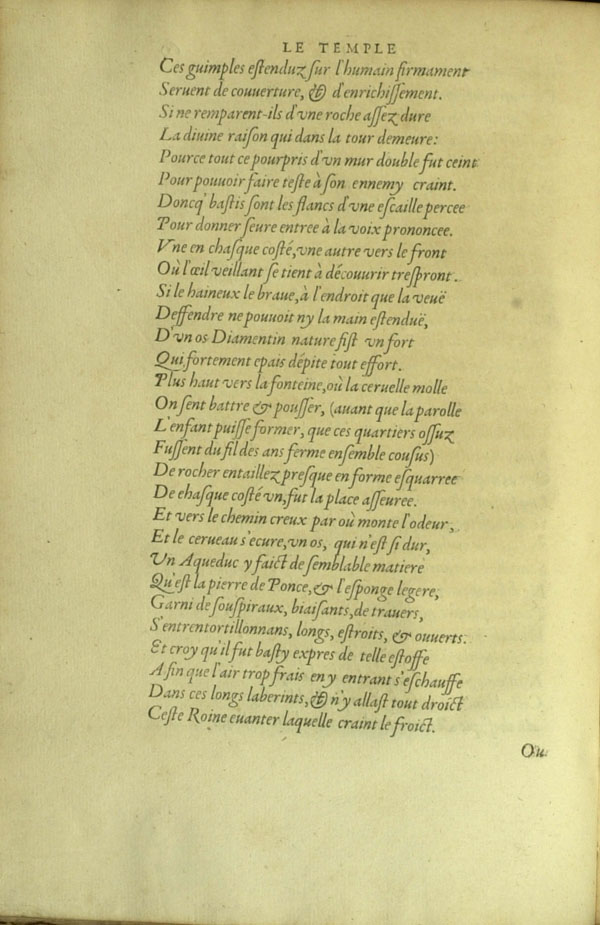 LE TEMPLE
Ces guimples eſtenduz ſur l'humain firmament
Seruent de couuerture, & d'enrichiſſement.
Si ne remparent-ils d'vne roche aſſez dure
La diuine raiſon qui dans la tour demeure:
Pource tout ce pourpris d'vn mur double fut ceint
Pour pouuoir faire teſte à ſon ennemy craint.
Doncq' baſtis ſont les flancs d'vne eſcaille percee
Pour donner ſeure entree à la voix prononcee.
Vne en chaſque coſté, vne autre vers le front
Où l'œil veillant ſe tient à découurir treſpront.
Si le haineux le braue, à l'endroit que la veuë
Deffendre ne pouuoit ny la main eſtenduë,
D'vn os Diamentin nature fiſt vn fort
Qui fortement epais dépite tout effort.
Plus haut vers la fonteine, où la ceruelle molle
On ſent battre & pouſſer, (auant que la parolle
L'enfant puiſſe former, que ces quartiers oſſuz
Fuſſent du fil des ans ferme enſemble couſus)
De rocher entaillez preſque en forme eſquarree
De chaſque coſté vn, fut la place aſſeuree.
Et vers le chemin creux par où monte l'odeur,
Et le cerueau s'ecure, vn os, qui n'eſt ſi dur,
Vn Aqueduc y faict de ſemblable matiere
Qu'eſt la pierre de Ponce, & l'eſponge legere,
Garni de ſouſpiraux, biaiſants, de trauers,
S'entrentortillonnans, longs, eſtroits, & ouuerts.
Et croy qu'il fut baſty expres de telle eſtoffe
A fin que l'air trop frais en y entrant s'eſchauffe
Dans ces longs laberints, & n'y allaſt tout droict
Ceſte Roine euanter laquelle craint le froict.
Ou